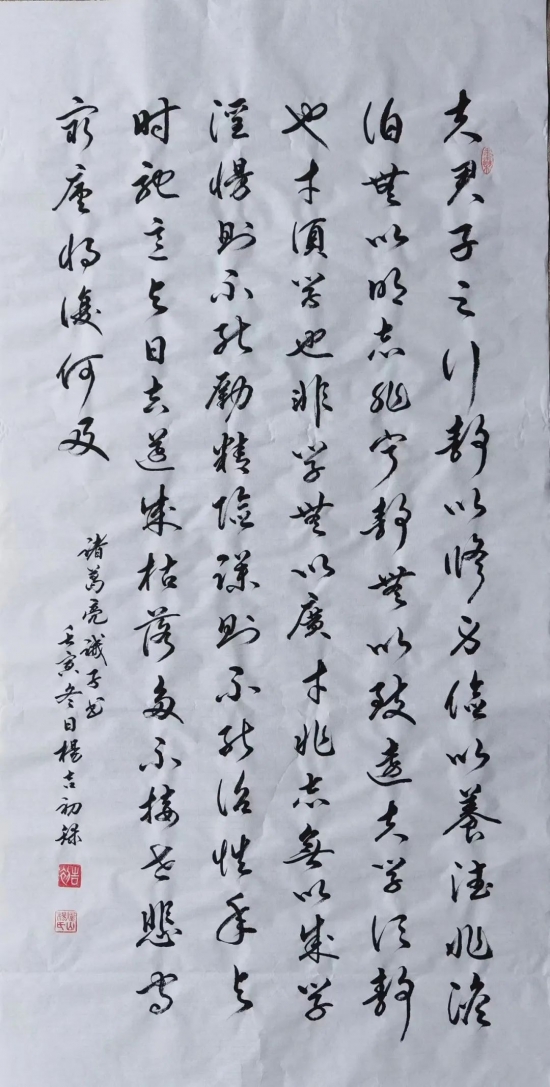 夫君子之行静以修身俭以養德非澹
泊無以明志非宁静無以致遠夫学须静
也才須学也非学無以廣才非志無以成学
淫慢则不能励精险躁则不能治性年与
时驰意与日去遂成枯落多不接世悲守
窮廬将復何及
諸葛亮诫子书
壬寅冬日楊吉初録